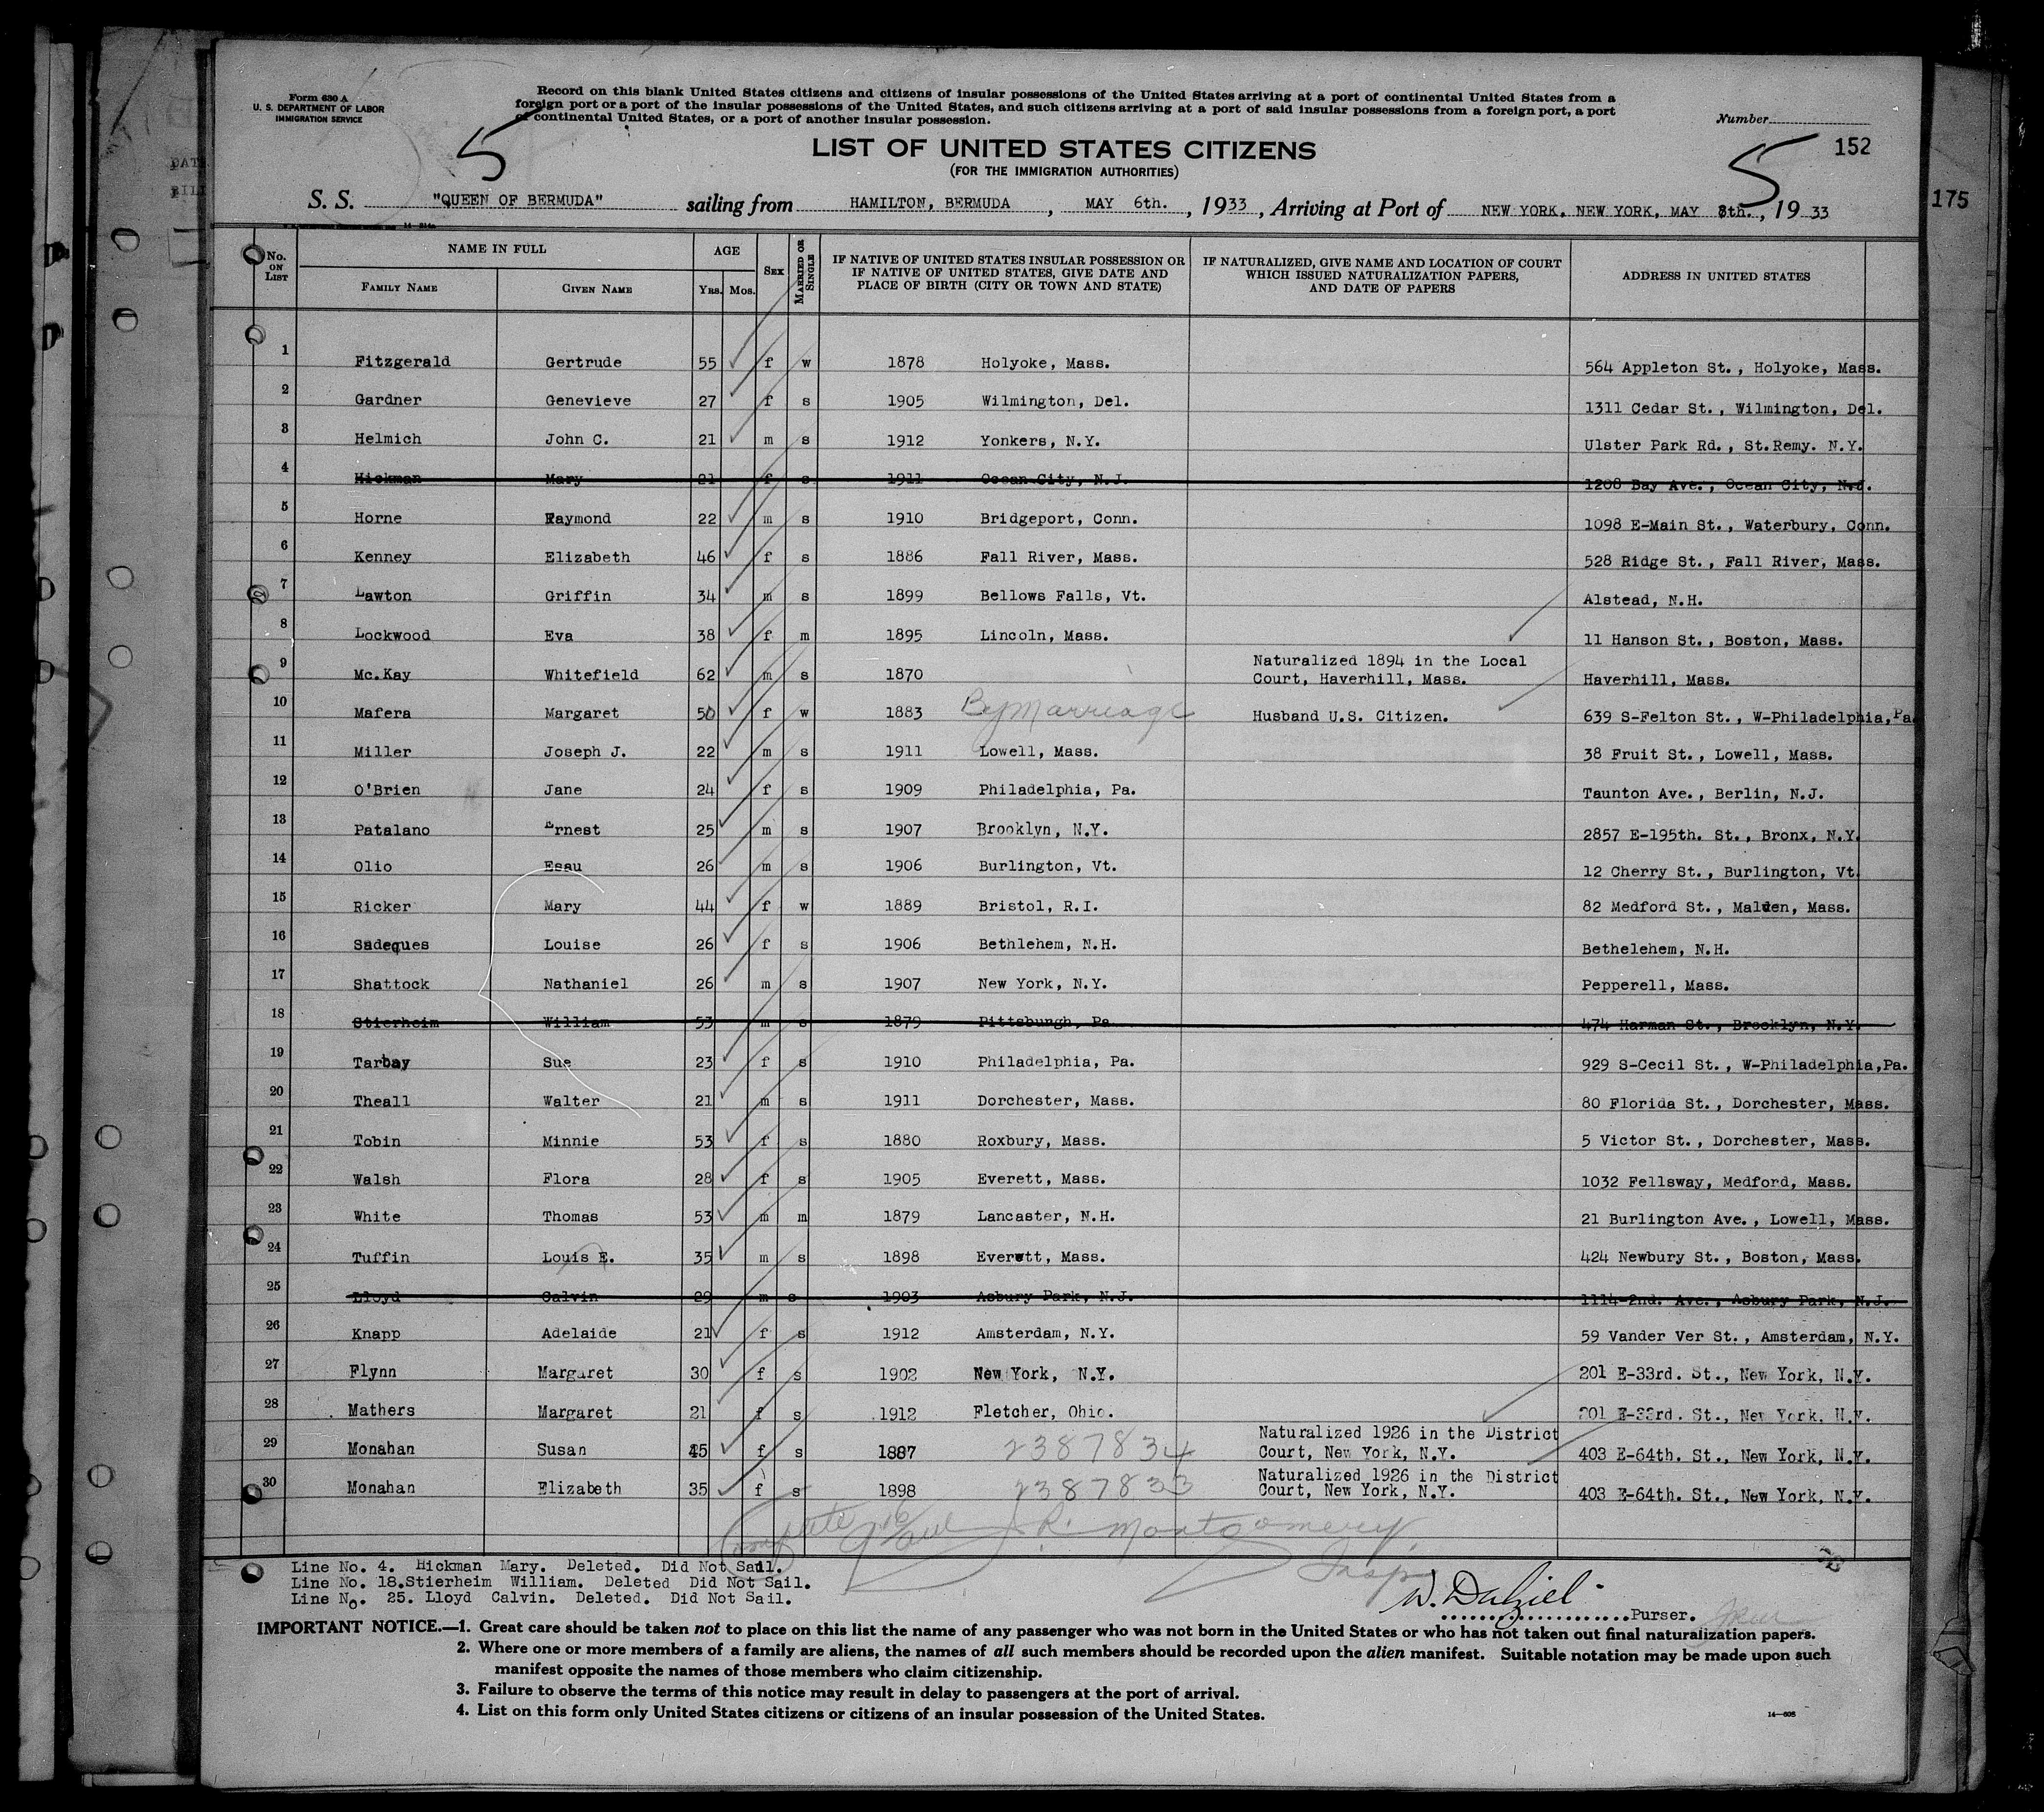 Form 630 A
U. S. DEPARTMENT OF LABOR
IMMIGRATION SERVICE
Record on this blank United States citizens and citizens of insular possessions of the United States arriving at a port of continental United States from a
foreign port or a port of the insular possessions of the United States, and such citizens arriving at a port of said insular possessions from a foreign port, a port
of continental United States, or a port of another insular possession.
Number
5
5
152
175
LIST OF UNITED STATES CITIZENS
(FOR THE IMMIGRATION AUTHORITIES)
S. S. "QUEEN OF BERMUDA" sailing from HAMILTON, BERMUDA, MAY 6th., 1933, Arriving at Port of NEW YORK, NEW YORK, MAY 8th., 1933
No. ON LIST NAME IN FULL AGE SEX MARRIED OR SINGLE IF NATIVE OF UNITED STATES INSULAR POSSESSION OR IF NATIVE OF UNITED STATES, GIVE DATE AND PLACE OF BIRTH (CITY OR TOWN AND STATE) IF NATURALIZED, GIVE NAME AND LOCATION OF COURT WHICH ISSUED NATURALIZATION PAPERS, AND DATE OF PAPERS ADDRESS IN UNITED STATES
FAMILY NAME GIVEN NAME YRS. MOS.
1 Fitzgerald Gertrude 55 f w 1878 Holyoke, Mass. 564 Appleton St., Holyoke, Mass.
2 Gardner Genevieve 27 f s 1905 Wilmington, Del. 1311 Cedar St., Wilmington, Del.
3 Helmich John C. 21 m s 1912 Yonkers, N.Y. Ulster Park Rd., St.Remy. N.Y.
4 Hickman Mary 21 f s 1911 Ocean City, N.J. 1208 Bay Ave., Ocean City, N.J.
5 Horne Raymond 22 m s 1910 Bridgeport, Conn. 1098 E-Main St., Waterbury, Conn.
6 Kenney Elizabeth 46 f s 1886 Fall River, Mass. 528 Ridge St., Fall River, Mass.
7 Lawton Griffin 34 m s 1899 Bellows Falls, Vt. Alstead, N.H.
8 Lockwood Eva 38 f m 1895 Lincoln, Mass. 11 Hanson St., Boston, Mass.
9 Mc.Kay Whitefield 62 m s 1870 Naturalized 1894 in the Local Court, Haverhill, Mass. Haverhill, Mass.
10 Mafera Margaret 50 f w 1883 By Marriage Husband U.S. Citizen. 639 S-Felton St., W-Philadelphia,Pa.
11 Miller Joseph J. 22 m s 1911 Lowell, Mass. 38 Fruit St., Lowell, Mass.
12 O'Brien Jane 24 f s 1909 Philadelphia, Pa. Taunton Ave., Berlin, N.J.
13 Patalano Ernest 25 m s 1907 Brooklyn, N.Y. 2857 E-195th. St., Bronx, N.Y.
14 Olio Esau 26 m s 1906 Burlington, Vt. 12 Cherry St., Burlington, Vt.
15 Ricker Mary 44 f w 1889 Bristol, R.I. 82 Medford St., Malden, Mass.
16 Sadeques Louise 26 f s 1906 Bethlehem, N.H. Bethelehem, N.H.
17 Shattock Nathaniel 26 m s 1907 New York, N.Y. Pepperell, Mass.
18 Stierheim William 53 m s 1879 Pittsburgh, Pa 474 Harman St., Brooklyn, N.Y.
19 Tarbay Sue 23 f s 1910 Philadelphia, Pa. 929 S-Cecil St., W-Philadelphia,Pa.
20 Theall Walter 21 m s 1911 Dorchester, Mass. 80 Florida St., Dorchester, Mass.
21 Tobin Minnie 53 f s 1880 Roxbury, Mass. 5 Victor St., Dorchester, Mass.
22 Walsh Flora 28 f s 1905 Everett, Mass. 1032 Fellsway, Medford, Mass.
23 White Thomas 53 m m 1879 Lancaster, N.H. 21 Burlington Ave., Lowell, Mass.
24 Tuffin Louis E. 35 m s 1898 Everett, Mass. 424 Newbury St., Boston, Mass.
25 Lloyd Calvin 29 m s 1903 Asbury Park, N.J. 1114-2nd. Ave., Asbury Park, N.J.
26 Knapp Adelaide 21 f s 1912 Amsterdam, N.Y. 59 Vander Ver St., Amsterdam, N.Y.
27 Flynn Margaret 30 f s 1902 New York, N.Y. 201 E-33rd. St., New York, N.Y.
28 Mathers Margaret 21 f s 1912 Fletcher, Ohio. 201 E-33rd. St., New York, N.Y.
29 Monahan Susan 45 f s 1887 2387834 Naturalized 1926 in the District Court, New York, N.Y. 403 E-64th. St., New York, N.Y.
30 Monahan Elizabeth 35 f s 1898 2387833 Naturalized 1926 in the District Court, New York, N.Y. 403 E-64th. St., New York, N.Y.
Paul R. Montgomery
Insp
Line No. 4. Hickman Mary. Deleted. Did Not Sail.
Line No. 18.Stierheim William. Deleted Did Not Sail.
Line No. 25. Lloyd Calvin. Deleted. Did Not Sail.
W. Dalziel
Purser.
IMPORTANT NOTICE.—1. Great care should be taken not to place on this list the name of any passenger who was not born in the United States or who has not taken out final naturalization papers.
2. Where one or more members of a family are aliens, the names of all such members should be recorded upon the alien manifest. Suitable notation may be made upon such
manifest opposite the names of those members who claim citizenship.
3. Failure to observe the terms of this notice may result in delay to passengers at the port of arrival.
4. List on this form only United States citizens or citizens of an insular possession of the United States.